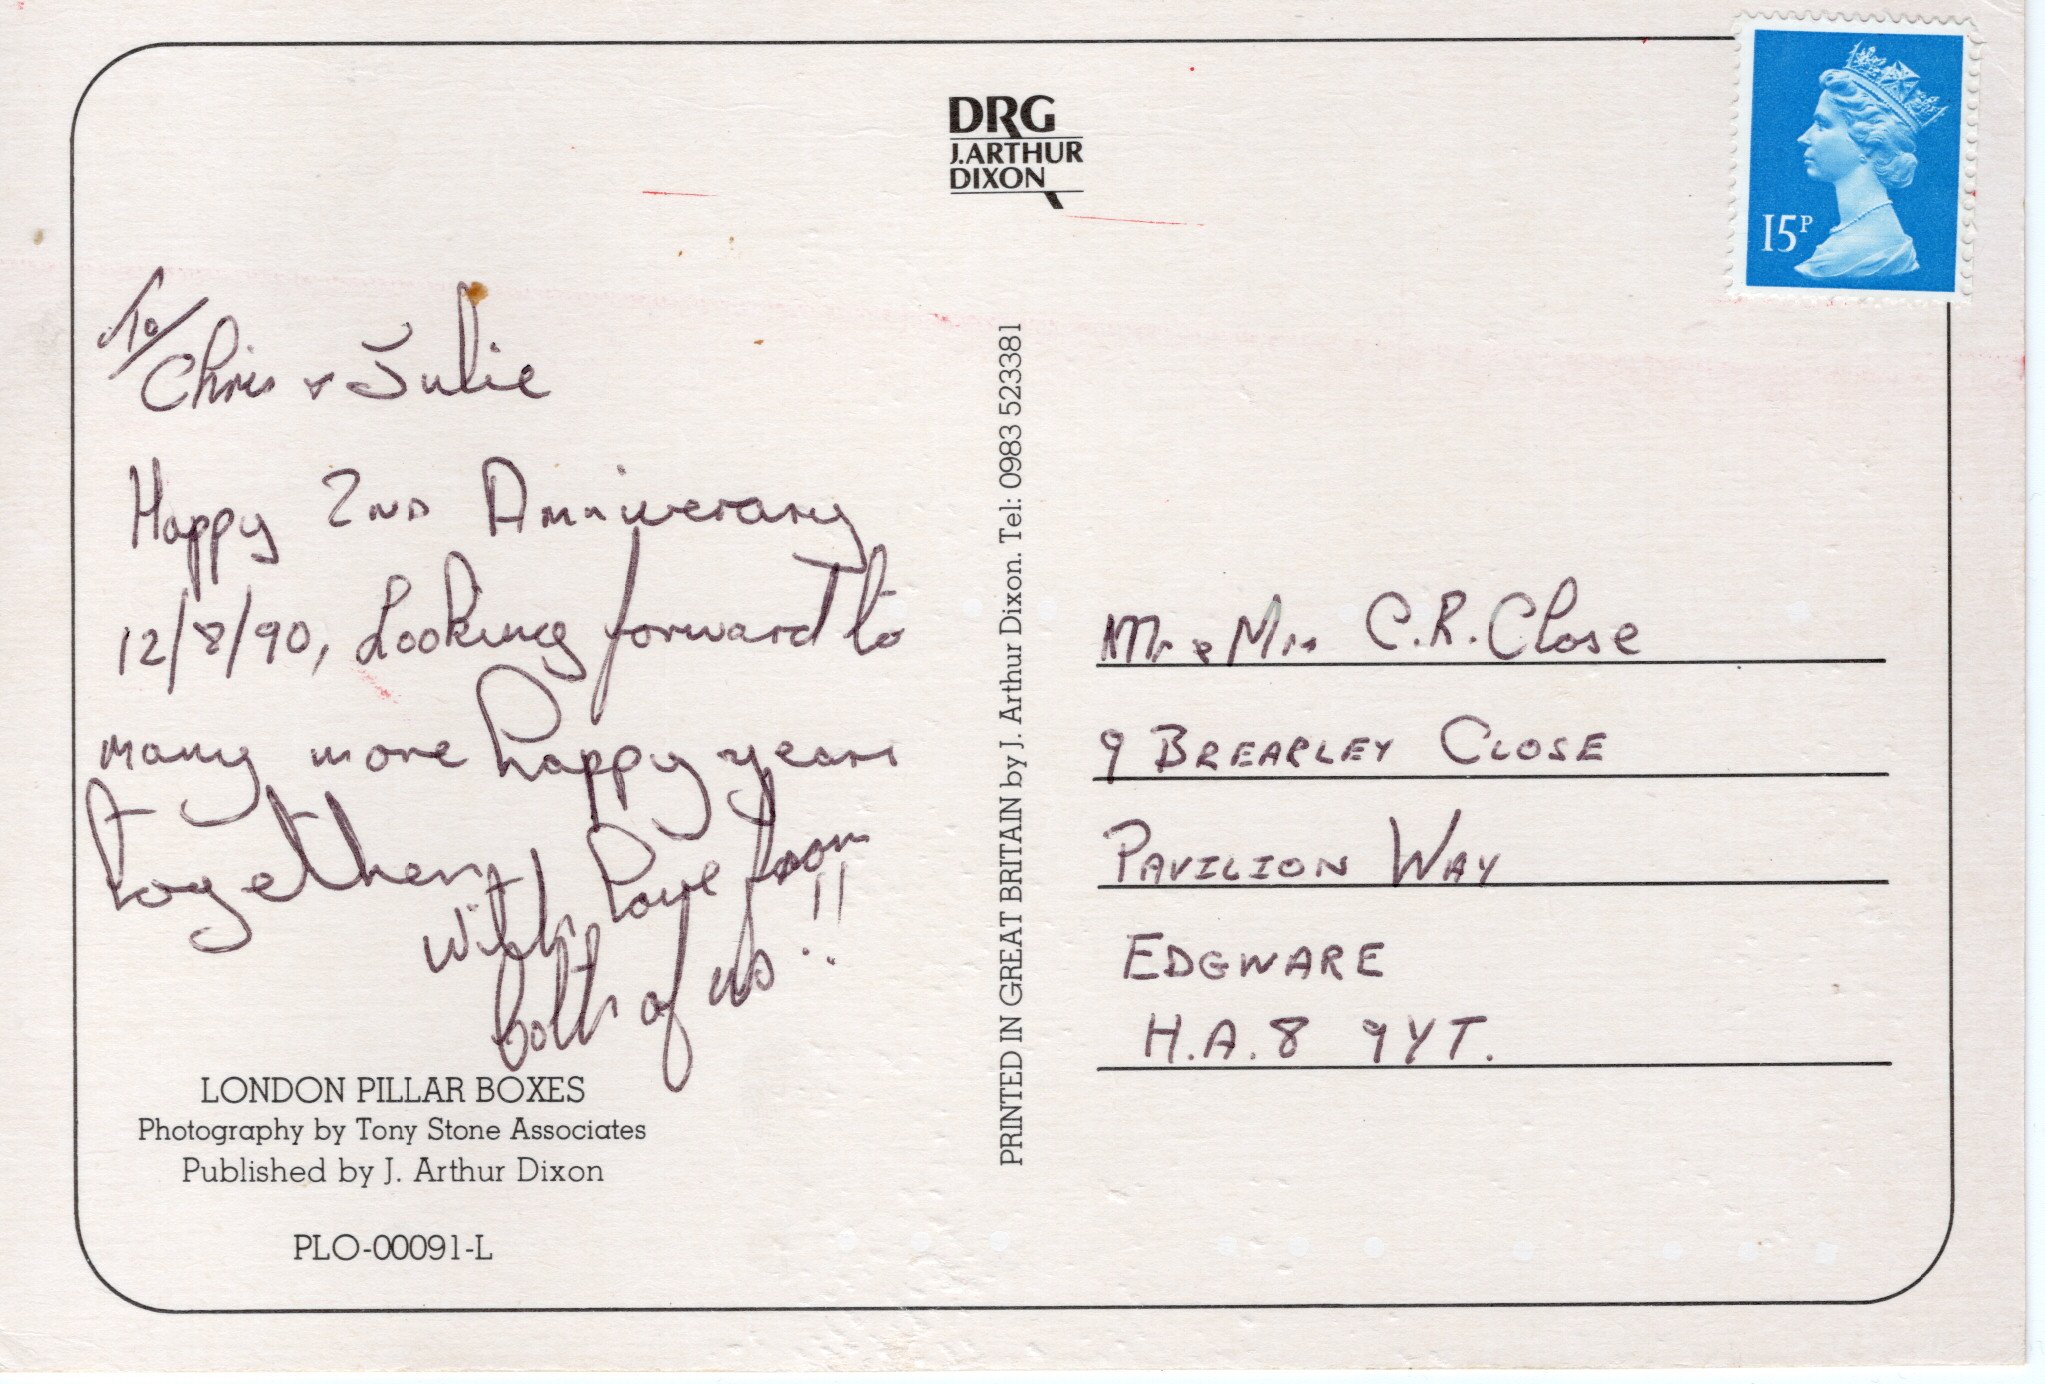 DRG
J.ARTHUR
DIXON
15P
To/
Chris & Julie
Happy 2ND Anniverary
12/8/90, Looking forward to
many more happy years
together,
with love from
both of us!!
LONDON PILLAR BOXES
Photography by Tony Stone Associates
Published by J. Arthur Dixon
PLO-00091-L
PRINTED IN GREAT BRITAIN by J. Arthur Dixon. Tel: 0983 523381
Mr & Mrs C.R. Close
9 BREARLEY CLOSE
PAVILION WAY
EDGWARE
H.A.8 9YT.